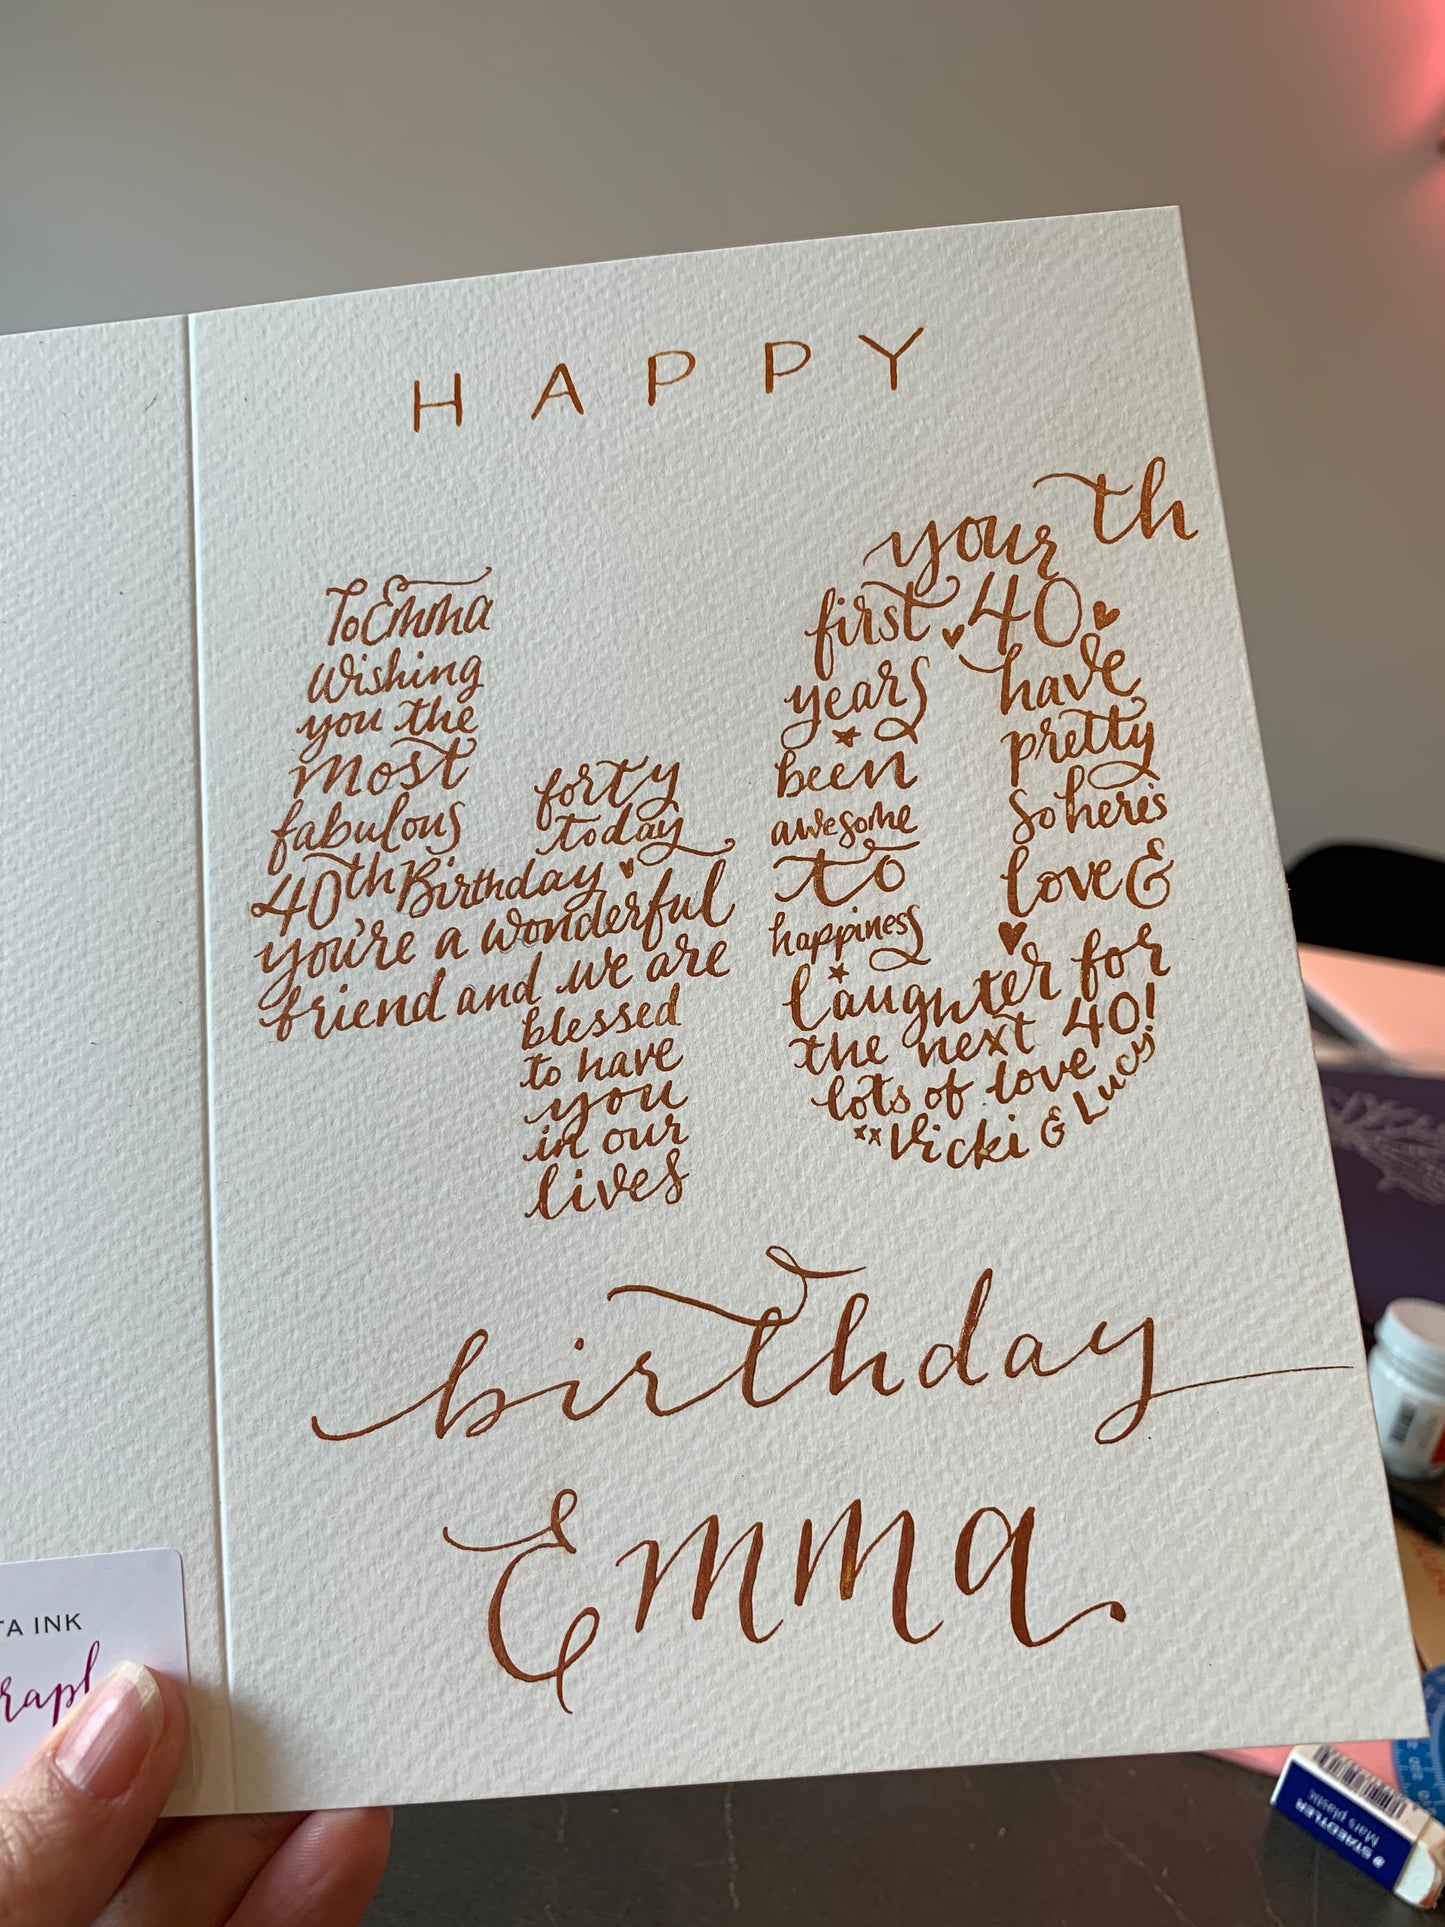 HAPPY
To Emma
Wishing
you the
most
fabulous
forty
today
40th Birthday
you're a wonderful
friend and we are
blessed
to have
you
in our
lives
your
th
first 40
years
been
awesome
to
happiness
have
pretty
So here's
love &
laughter for
the next 40!
lots of love
xx Vicki & Lucy
birthday
Emma
TA INK
STAEDTLER
Mars plastic